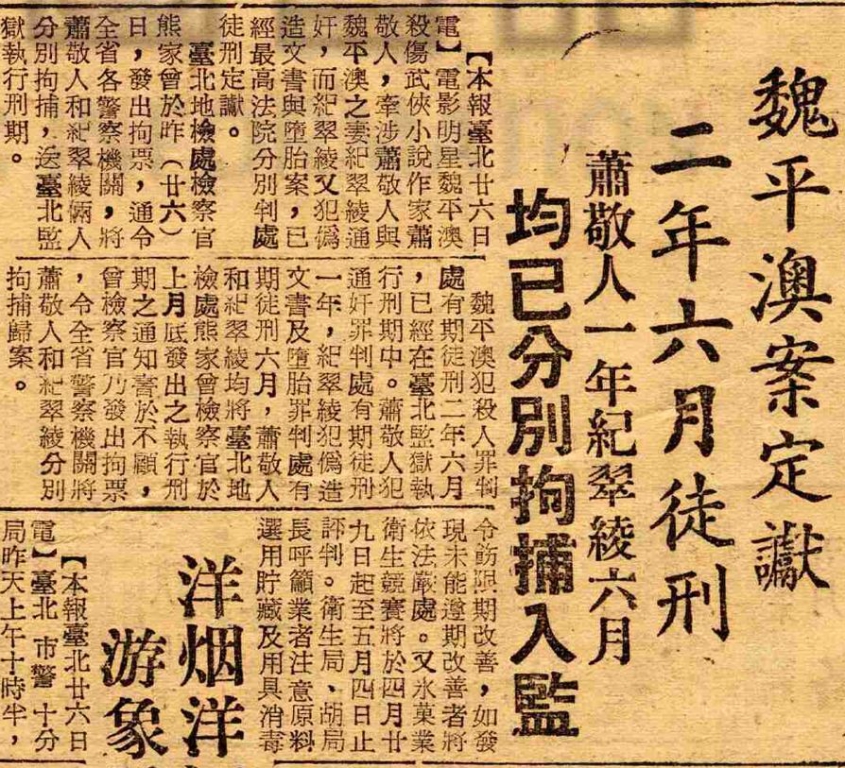 魏平澳案定讞
二年六月徒刑
蕭敬人一年紀翠綾六月
均已分別拘捕入監
【本報臺北廿六日
電】電影明星魏平澳
殺傷武俠小說作家蕭
敬人，牽涉蕭敬人與
魏平澳之妻紀翠綾通
奸，而紀翠綾又犯偽
造文書與墮胎案，已
經最高法院分別判處
徒刑定讞。
臺北地檢處檢察官
熊家曾於昨（廿六）
日，發出拘票，通令
全省各警察機關，將
蕭敬人和紀翠綾倆人
分別拘捕，送臺北監
獄執行刑期。
魏平澳犯殺人罪判
處有期徒刑二年六月
，已經在臺北監獄執
行刑期中。蕭敬人犯
通奸罪判處有期徒刑
一年，紀翠綾犯偽造
文書及墮胎罪判處有
期徒刑六月，蕭敬人
和紀翠綾均將臺北地
檢處熊家曾檢察官於
上月底發出之執行刑
期之通知書於不顧，
曾檢察官乃發出拘票
，令全省警察機關將
蕭敬人和紀翠綾分別
拘捕歸案。
令飭限期改善，如發
現未能遵期改善者將
依法嚴處。又氷菓業
衛生競賽將於四月廿
九日起至五月四日止
評判。衛生局、胡局
長呼籲業者注意原料
選用貯藏及用具消毒
洋烟洋
游象
【本報臺北廿六日
電】臺北市警十分
局昨天上午十時半，